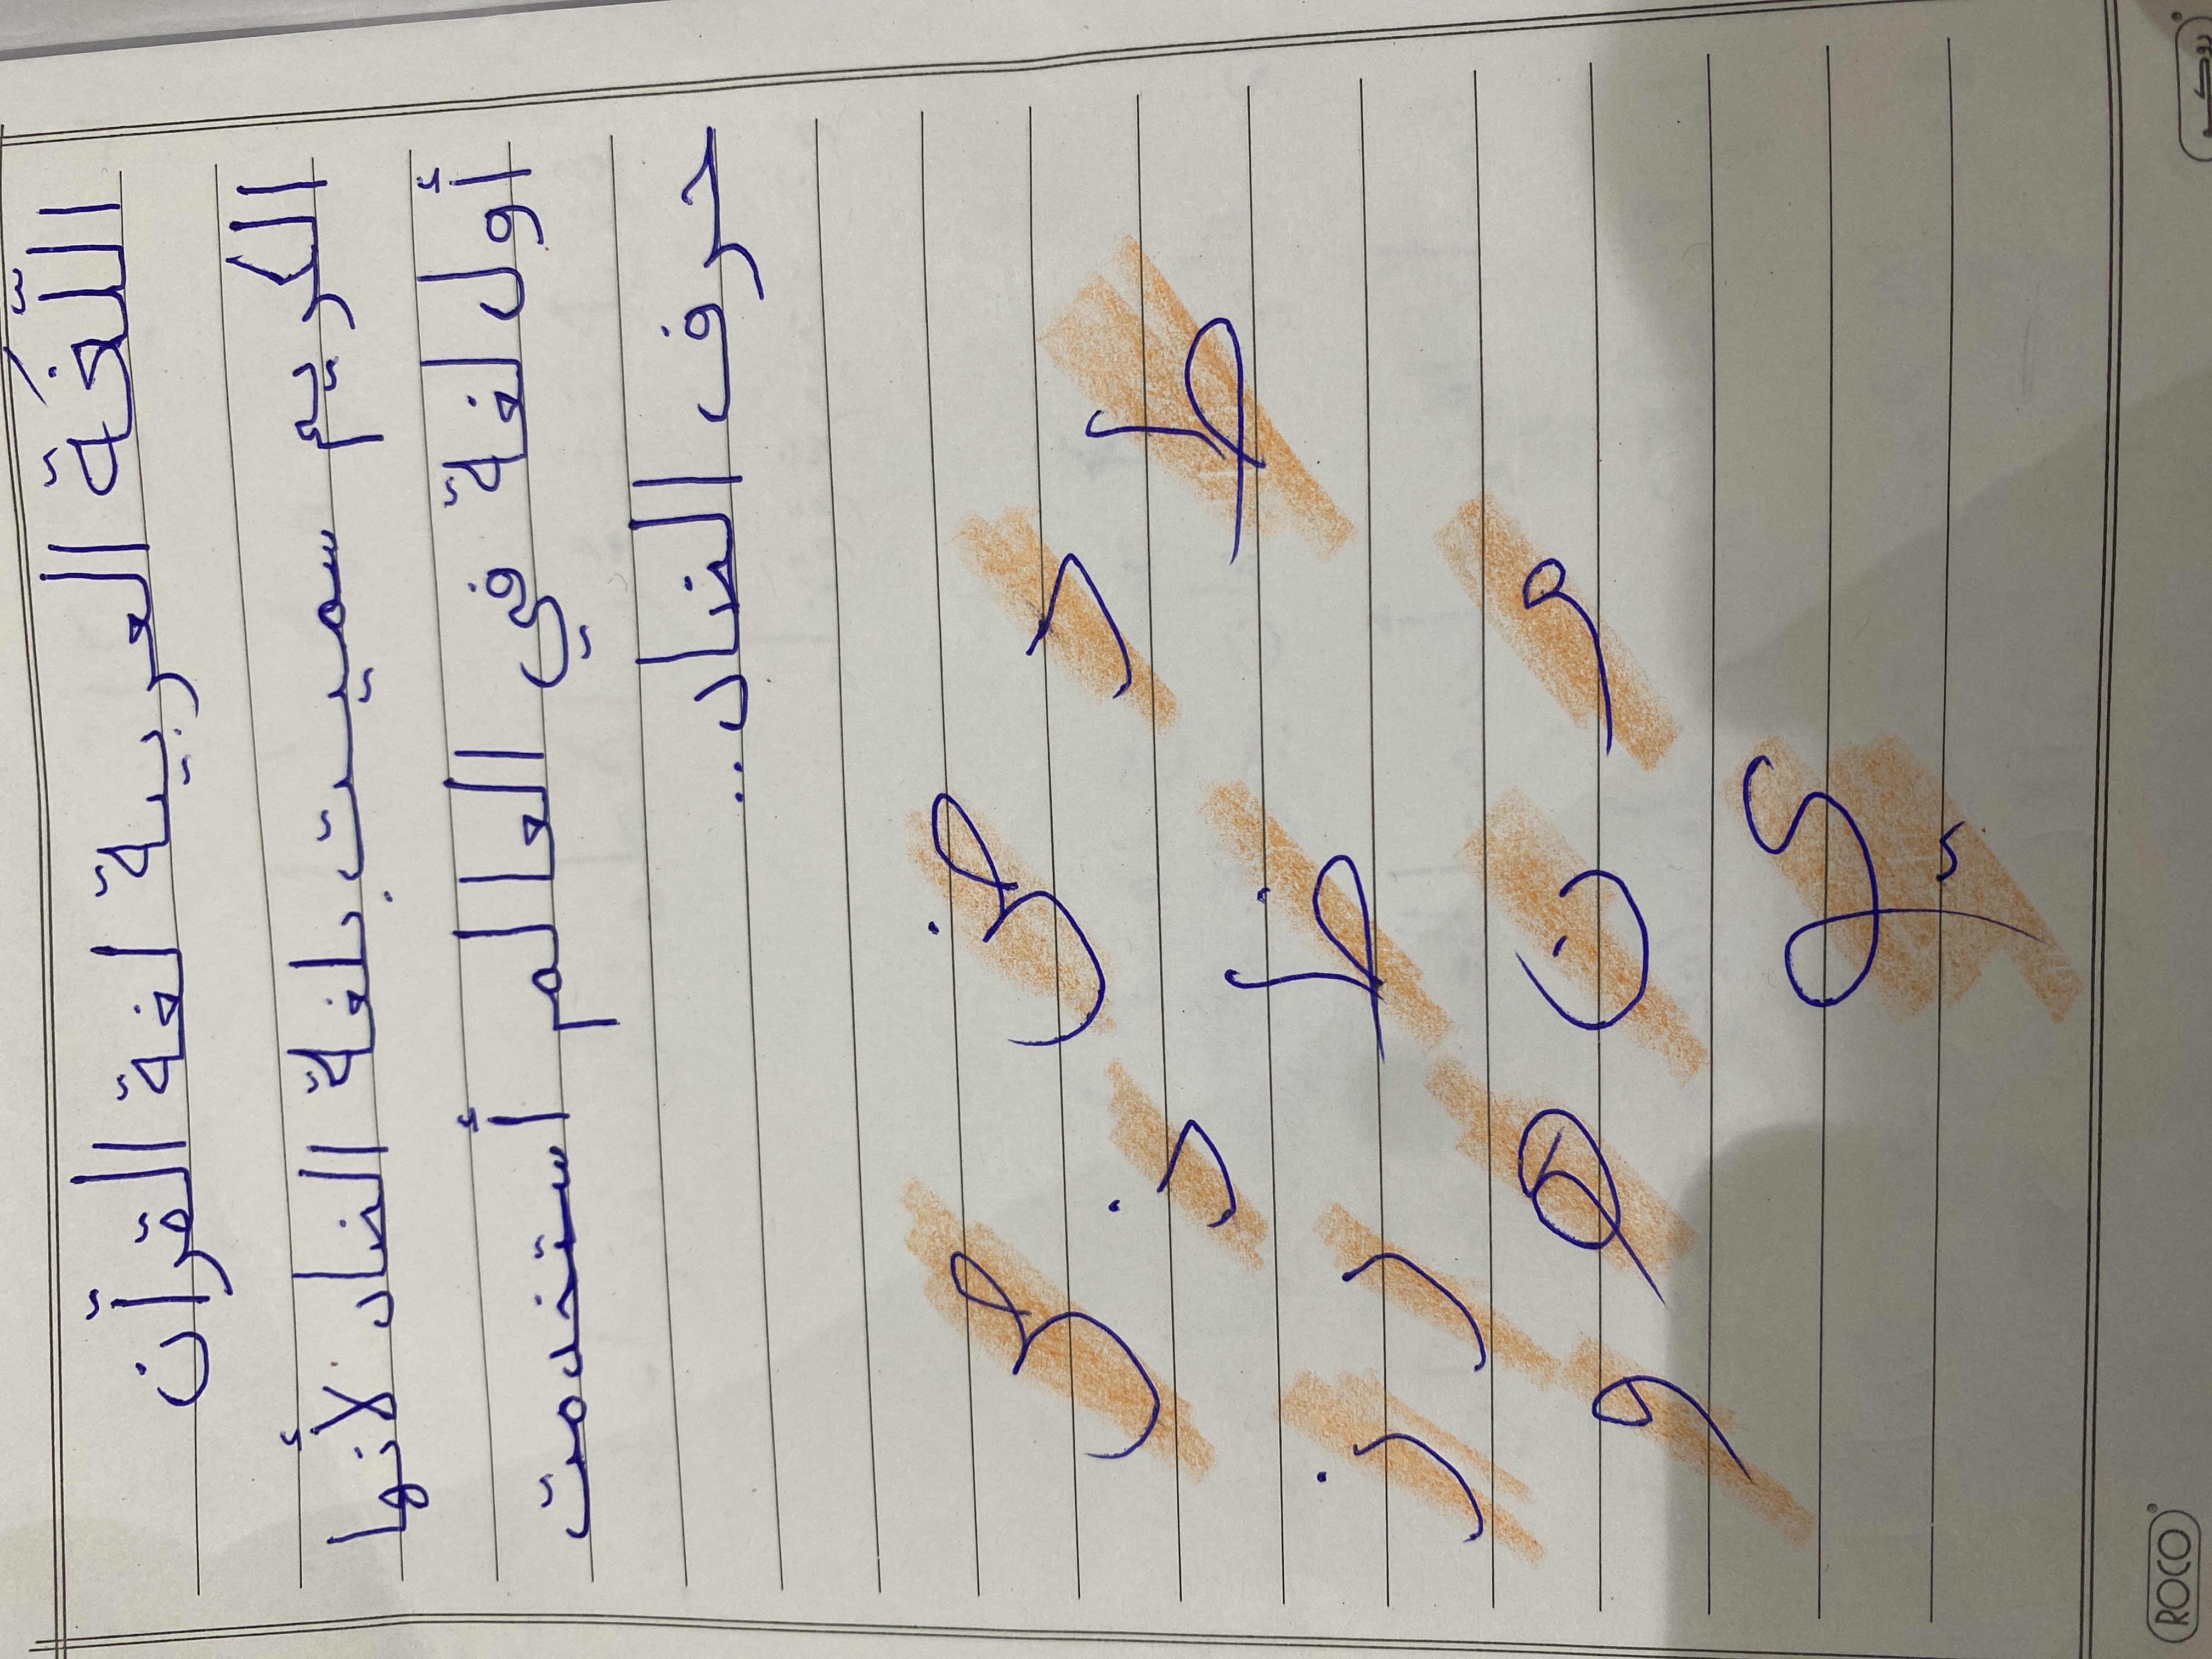 اللّغَة العربية لغة القرآن
الكريم سميت بلغة الضاد لأنها
أول لغة في العالم أستخدمت
حرف الضاد...
ض ص
د ذ
ط ظ ر ز
م ن ه و
ي
روكو
ROCO